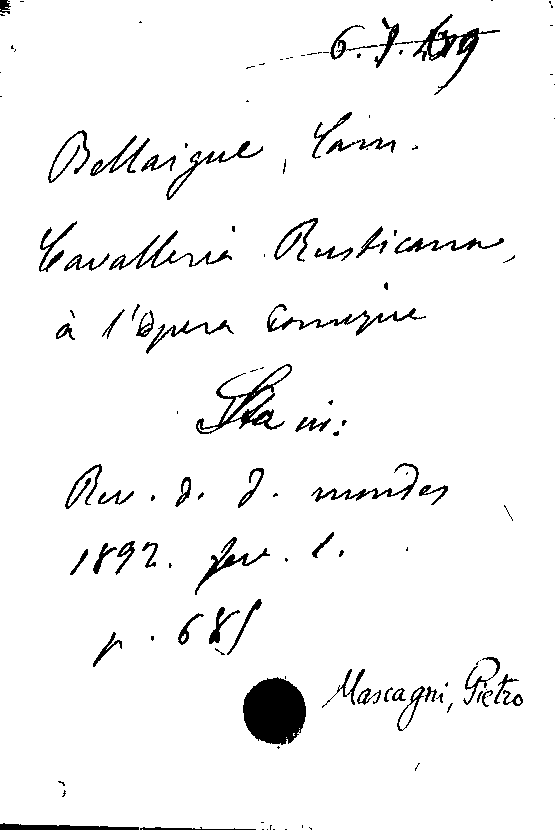 Bellaigue, Cam.
Cavalleria Rusticana,
à l'Opera Comique
Sta in:
Rev. d. d. mondes
1892. fev. 1.
p. 685
Mascagni, Pietro